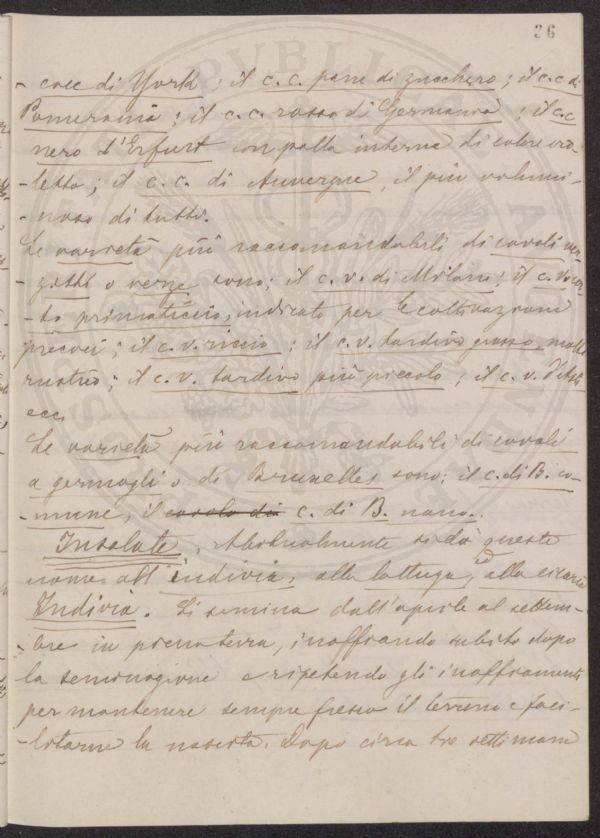 36
- coce di York; il c. c. pane di zucchero; il c. c. di
Pomerania; il c. c. rosso di Germania; il c. c.
nero d'Erfurt con palla interna di colore vio-
-letto; il c. c. di Auvergne, il più volumi-
-noso di tutti.
Le varietà più raccomandabili di cavoli ver-
-zotti o verze sono: il c. v. di Milano; il c. v.
-to primaticcio, indicato per le coltivazioni
precoci; il c. v. riccio; il c. v. tardivo grosso, molto
rustico; il c. v. tardivo più piccolo; il c. v. d'Asti
ecc.
Le varietà più raccomandabili di cavoli
a germogli o di Bruxelles sono: il c. di B. co-
-mune, il cavolo di c. di B. nano.
Insalate. Abitualmente si dà questo
nome all'indivia, alla lattuga, ed alla cicoria
Indivia. Si semina dall'aprile al settem-
-bre in piena terra, inaffiando subito dopo
la seminagione e ripetendo gli inaffiamenti
per mantenere sempre fresco il terreno e faci-
-litarne la nascita. Dopo circa tre settimane